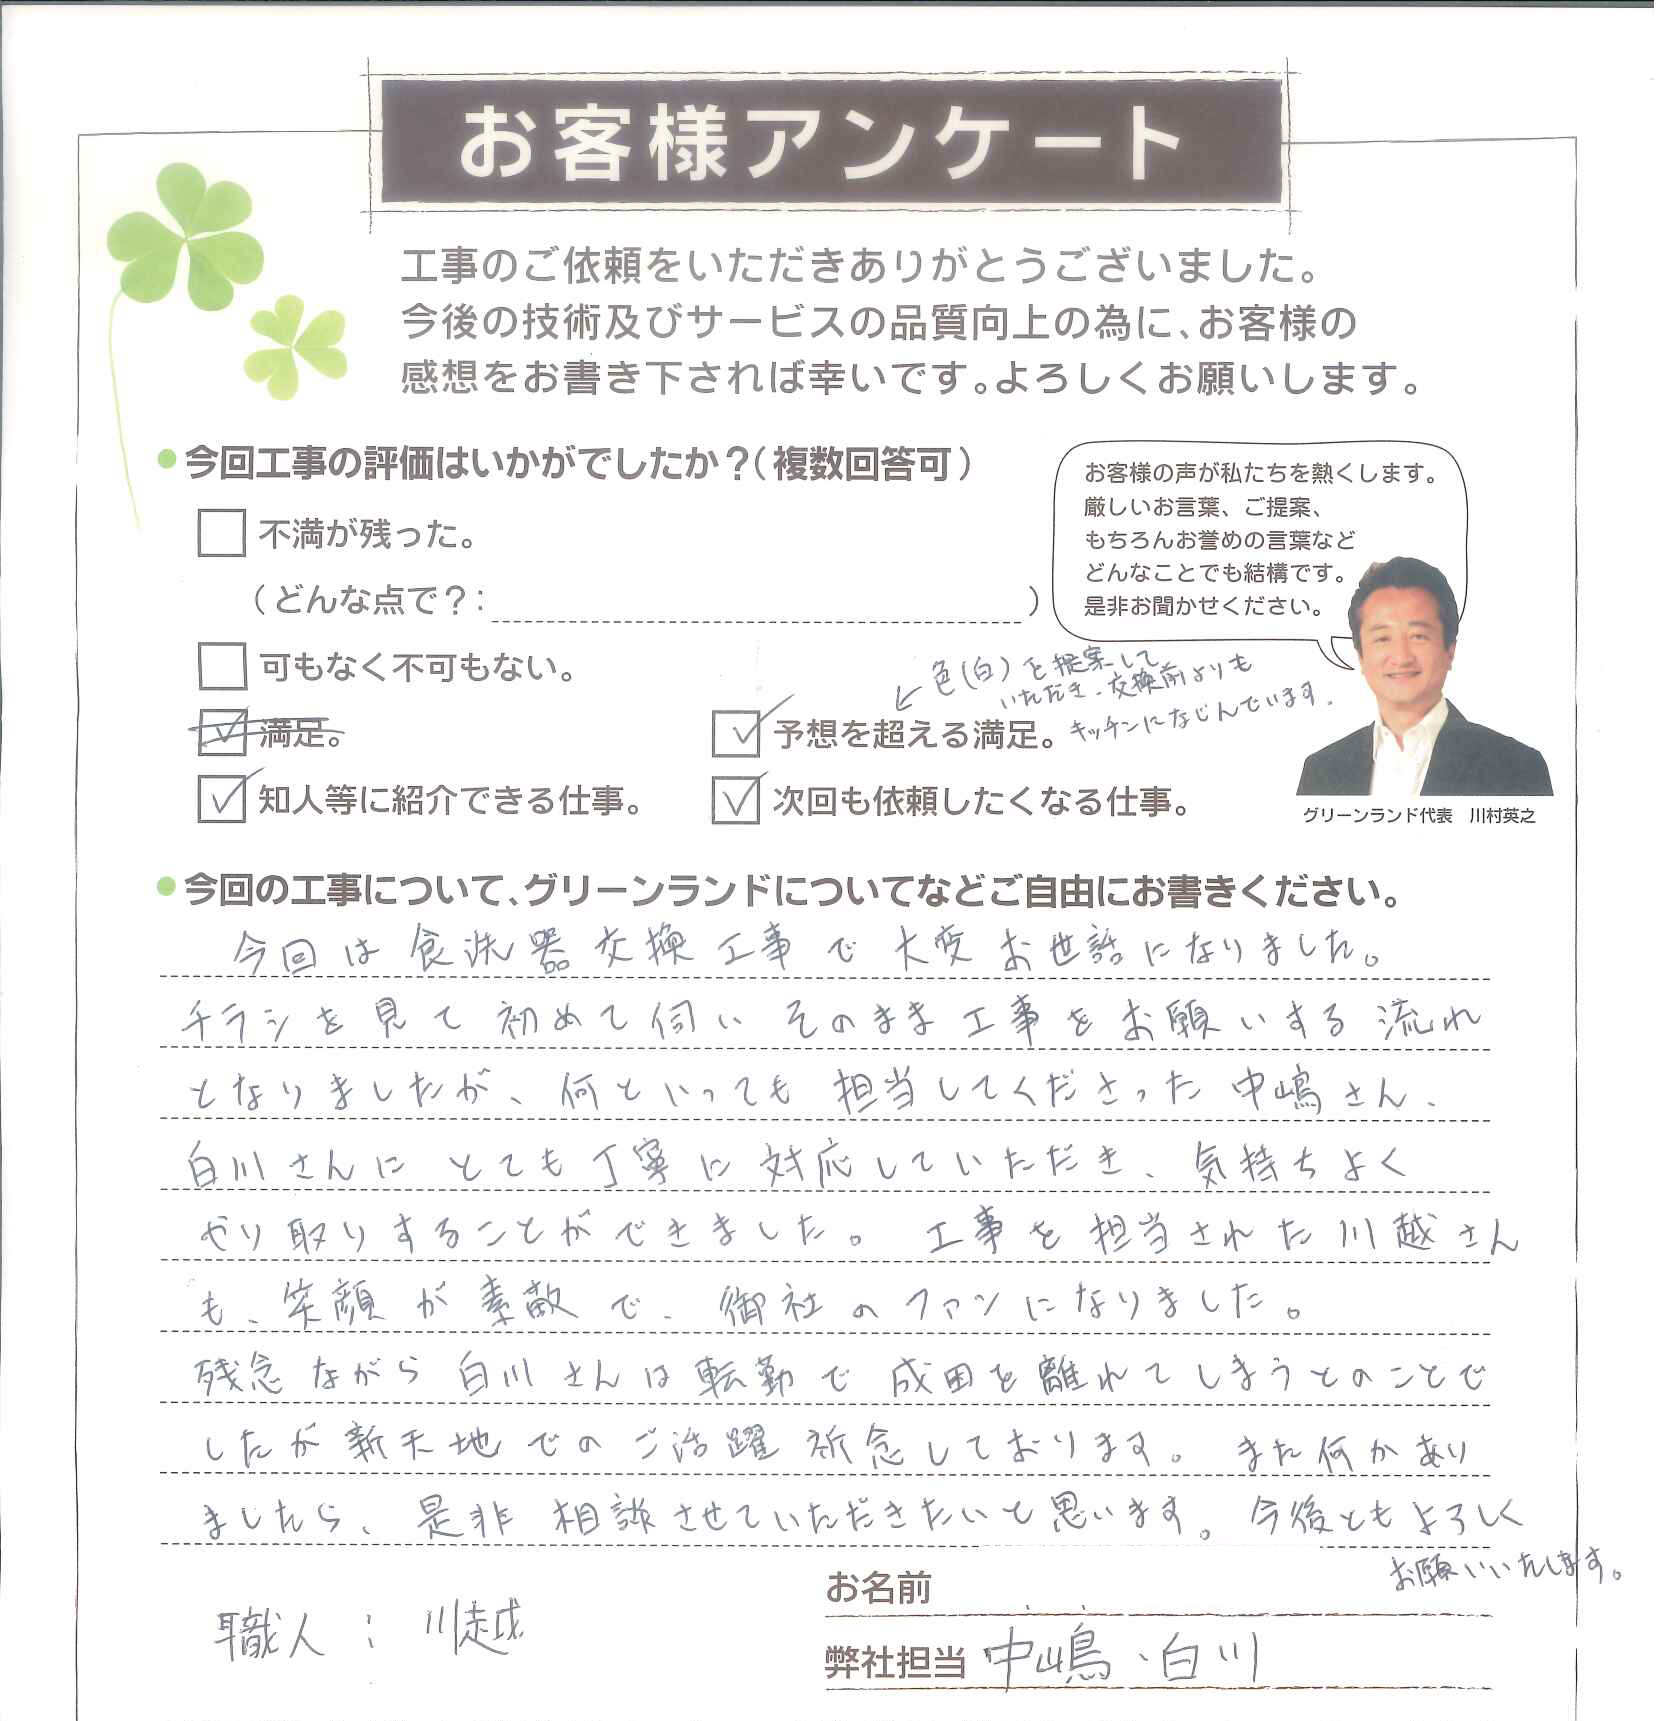 お客様アンケート
工事のご依頼をいただきありがとうございました。
今後の技術及びサービスの品質向上の為に、お客様の
感想をお書き下されば幸いです。よろしくお願いします。
今回工事の評価はいかがでしたか?(複数回答可)
不満が残った。
(どんな点で?: )
可もなく不可もない。
満足。
予想を超える満足。
知人等に紹介できる仕事。
次回も依頼したくなる仕事。
色(白)を提案して
いただき、交換前よりも
キッチンになじんでいます。
お客様の声が私たちを熱くします。
厳しいお言葉、ご提案、
もちろんお誉めの言葉など
どんなことでも結構です。
是非お聞かせください。
グリーンランド代表 川村英之
今回の工事について、グリーンランドについてなどご自由にお書きください。
今回は食洗器交換工事で大変お世話になりました。
チラシを見て初めて伺いそのまま工事をお願いする流れ
となりましたが、何といっても担当してくださった中嶋さん、
白川さんにとても丁寧に対応していただき、気持ちよく
やり取りすることができました。工事を担当された川越さん
も、笑顔が素敵で、御社のファンになりました。
残念ながら白川さんは転勤で成田を離れてしまうとのことで
したが新天地でのご活躍祈念しております。また何かあり
ましたら、是非相談させていただきたいと思います。今後ともよろしく
お願いいたします。
お名前
職人:川越
弊社担当 中嶋、白川